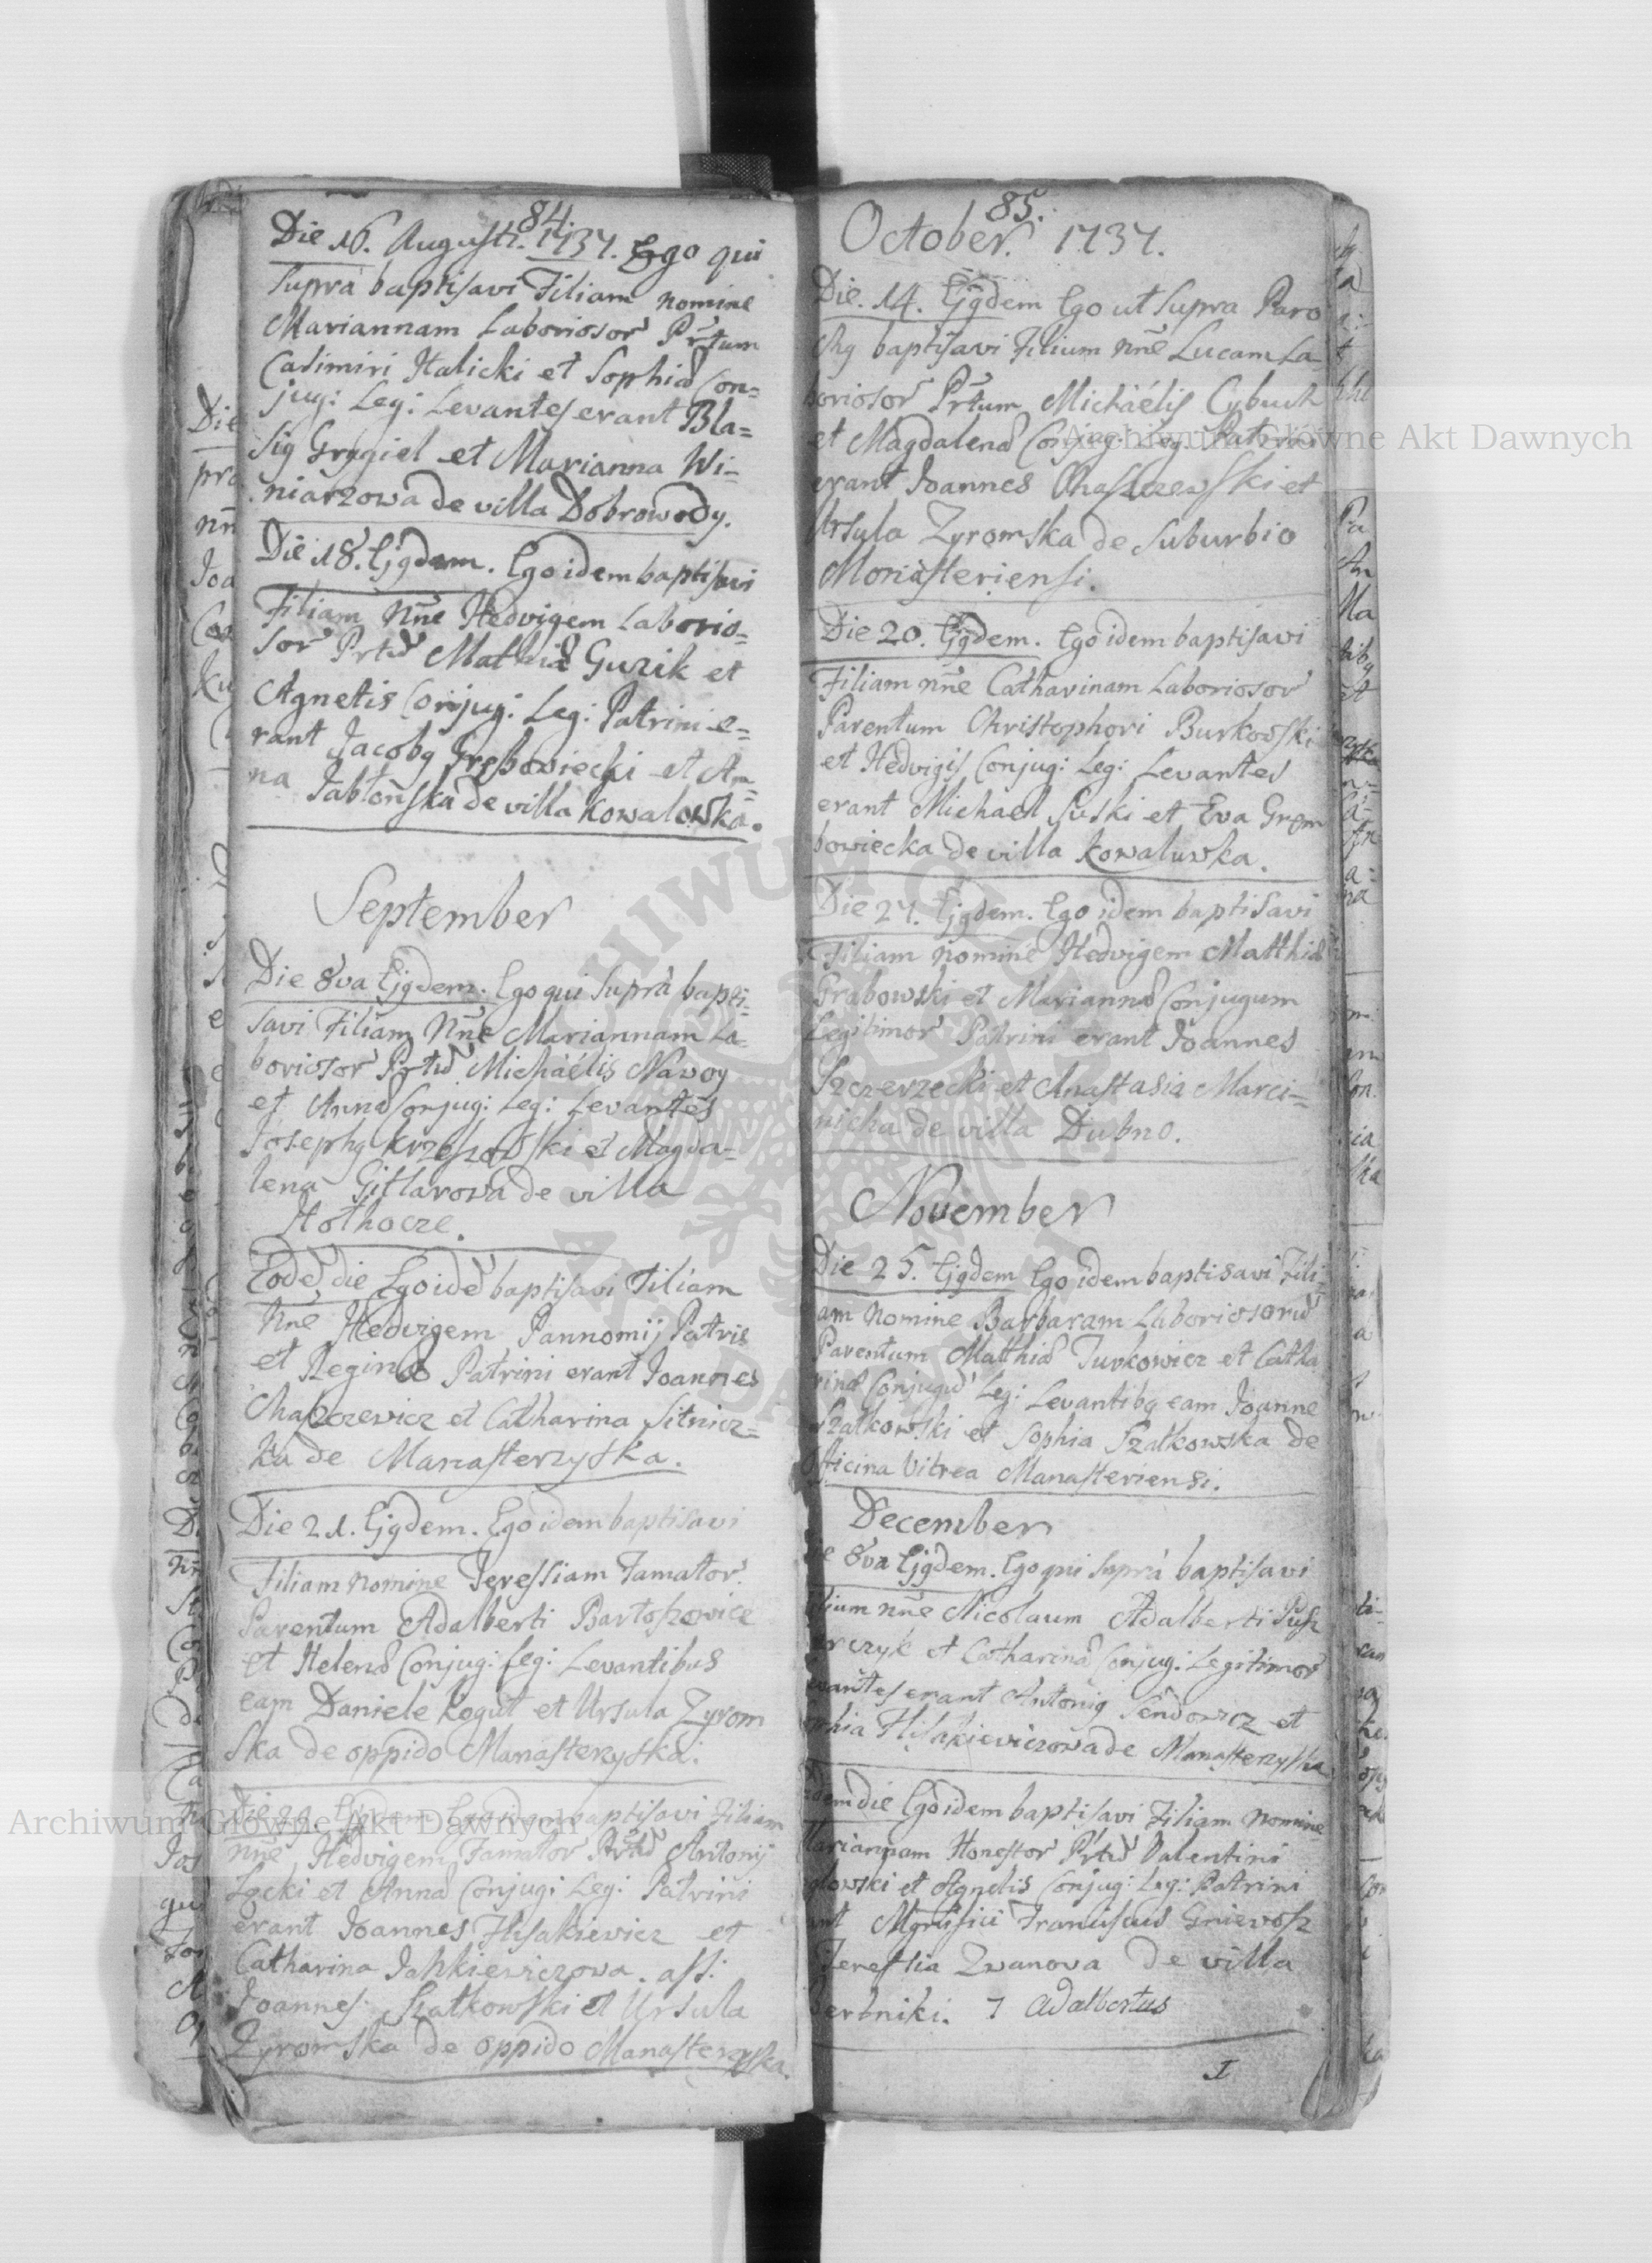 84.
Die 16. Augusti. 1737. Ego qui
supra baptisavi Filiam nomine
Mariannam Laborioso᷃r Prtum
Casimiri Halicki et Sophiæ Con=
jug: Leg: Levantes erant Bla=
sig Grygiel et Marianna Wi=
niarzowa de villa Dobrowody.
Die 18. Ejgdem. Ego idem baptisavi
Filiam Nñe Hedvigem Laborio=
sor Prtu Mathiæ Guzik et
Agnetis Conjug: Leg: Patrini e=
rant Jacobg et An=
na Jabłońska de villa Kowalowka.
September
Die 8va Ejgdem. Ego qui supra bapti=
savi Filiam Nñe Mariannam La=
borioSor Prtu Michaelis Nawoy
et Annæ Conjug: Leg: Levantes
Josephg et Magda=
lena Gitlarowa de villa
Hothocze.
Eode die Ego ide baptisavi Filiam
Nñe Hedvigem Pannomij Patris
et Reginæ Patrini erant Joannes
Chaszczewicz et Catharina Sitnicz=
ka de Manasterzyska.
Die 21. Ejgdem. Ego idem baptisavi
Filiam nomine Teressiam Famator
Parentum Adalberti Bartoszowicz
et Helenæ Conjug: Leg: Levantibus
eam Daniele Kogut et Ursula Zyrom
ska de oppido Manasterzyska.
Die 29. Ejgdem Ego idem baptisavi Filiam
nñe Hedvigem Famator Prtu Antonij
Łącki et Annæ Conjug: Leg: Patrini
erant Joannes Hisakiewicz et
Catharina Jahkiewiczowa. ass:
Joannes Szatkowski et Ursula
Zyromska de oppido Manasterzyska.
85.
October. 1737.
Die. 14. Ejgdem Ego ut supra Paro
chg baptisavi Filium nñe Lucam La
boriosor Prtum Michaelis Cybuch
et Magdalenæ Conjug: Leg: Patrini
erant Joannes Chaszczewski et
Ursula Zyromska de Suburbio
Monasteriensi.
Die 20. Ejgdem. Ego idem baptisavi
Filiam nñe Catharinam Laboriosor
Parentum Christophori Burkowski
et Hedvigis Conjug: Leg: Levantes
erant Michael Suski et Eva Grem
bowiecka de villa Kowaluwka.
Die 27. Ejgdem. Ego idem baptisavi
Filiam nomine Hedvigem Matthiæ
Grabowski et Mariannæ Conjugum
Legitimor Patrini erant Joannes
Szczerzecki et Anastasia Marci=
nicha de villa Dubno.
November
Die 25. Ejgdem Ego idem baptisavi Fili=
am nomine Barbaram Laboriosoru
Parentum Matthiæ Turkowicz et Catha
rinæ Conjugu Leg: Levantibg eam Joanne
Szatkowski et Sophia Szatkowska de
Officina Vitrea Manasteriensi.
December
Die 8va Ejgdem. Ego qui supra baptisavi
Filium nñe Nicolaum Adalberti
et Catharinæ Conjug: Legitimor
Levantes erant Antonig Sendowicz et
Sophia Hisakiewiczowa de Manasterzyska
Eodem die Ego idem baptisavi Filiam nomine
Mariannam Honestor Prtu Valentini
et Agnetis Conjug: Leg: Patrini
erant Mgnifici Franciscus Gniewosz
Teressia Zwanowa de villa
Berbniki. 7 Adalbertus
I
Archiwum Główne Akt Dawnych
Archiwum Główne Akt Dawnych